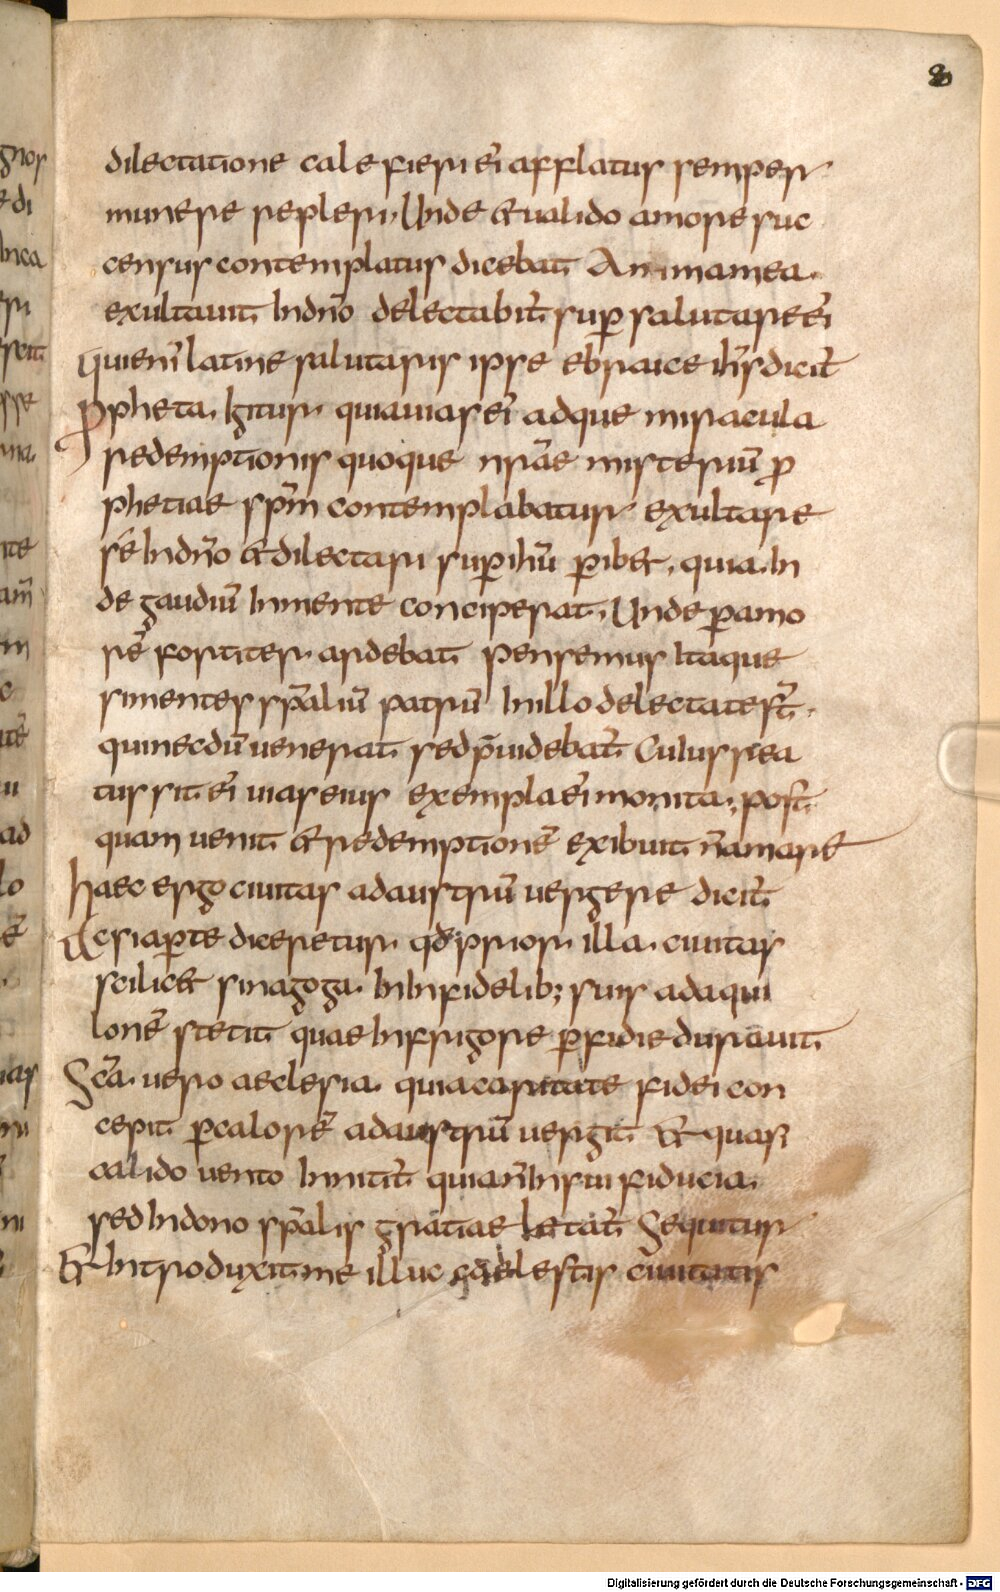 8
dilectatione calefieri eī afflatus semper
munere repleri, Unde et ualido amore suc
census contemplatus dicebat Anima mea.
exultauit In dn̄o delectabit̄ sup̱ salutare eī
Quienī latine salutaris ipse ebraice ih̄s dicit̄
P̱pheta. Igitur quia uias eī adque miracula
redemptionis quoque nr̄ae misteriū ꝓ
phetiae sp̄m contemplabatur exultare
sē In dn̄o et dilectari sup̱ ihū p̱ibet, quia. In
de gaudiū In mente conciperat, Unde p̱ amo
rē fortiter ardebat Pensemus Itaque
si mentes sp̄aliū patrū In illo delectate sт̄
qui necdū uenerat sed p̄uidebat̄ Cuius rea
tus sit eī uias eius exempla eī monita, post
quam uenit et redemptionē exibuit n̄ amare
Haec ergo ciuitas ad austrū uergere dicit̄
Ac si ap̱te diceretur qd̄ prior illa. ciuitas
scilicet sinagoga. In Infidelib; suis ad aqui
lonē stetit quae In frigore p̱fidie durauit
Sc̄a. uero aeclesia. quia caritate fidei con
cepit p̱ calorē ad austrū uergit Et quasi
calido uento Innitit̄ quia n̄ In sui fiducia.
sed In dono sp̄alis gratiae letat̄ Sequitur
Et Introduxit me illuc caelestis ciuitatis
Digitalisierung gefördert durch die Deutsche Forschungsgemeinschaft - DFG